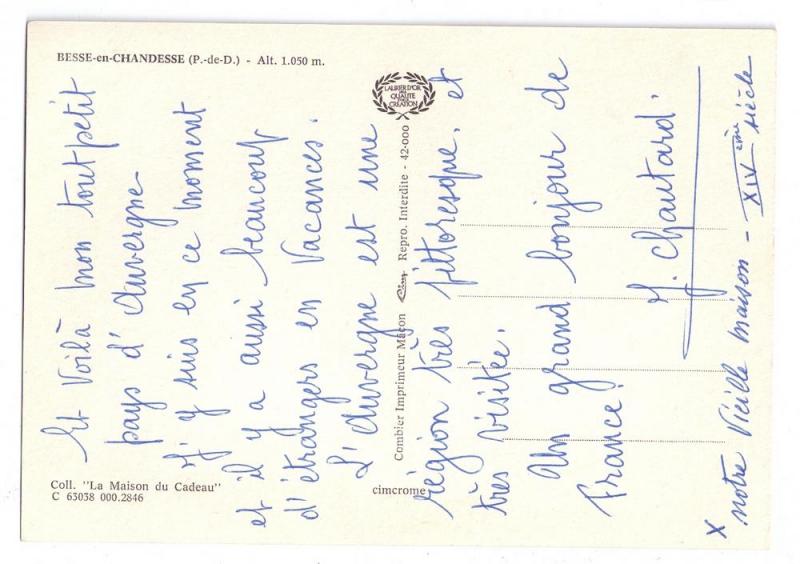 BESSE-en-CHANDESSE (P.-de-D.) - Alt. 1.050 m.
LAURIER D'OR
DE LA
QUALITÉ
CRÉATION
Combier Imprimeur Mâcon Cim Repro. Interdite - 42-000
Coll. "La Maison du Cadeau"
C 63038 000.2846
cimcrome
Et Voilà mon tout petit
pays d'Auvergne
J'y suis en ce moment
et il y a aussi beaucoup
d'étrangers en Vacances.
L'Auvergne est une
région très pittoresque, et
très visitée.
Un grand bonjour de
France!
J. Chautard.
x notre Vieille maison - XIVème siècle